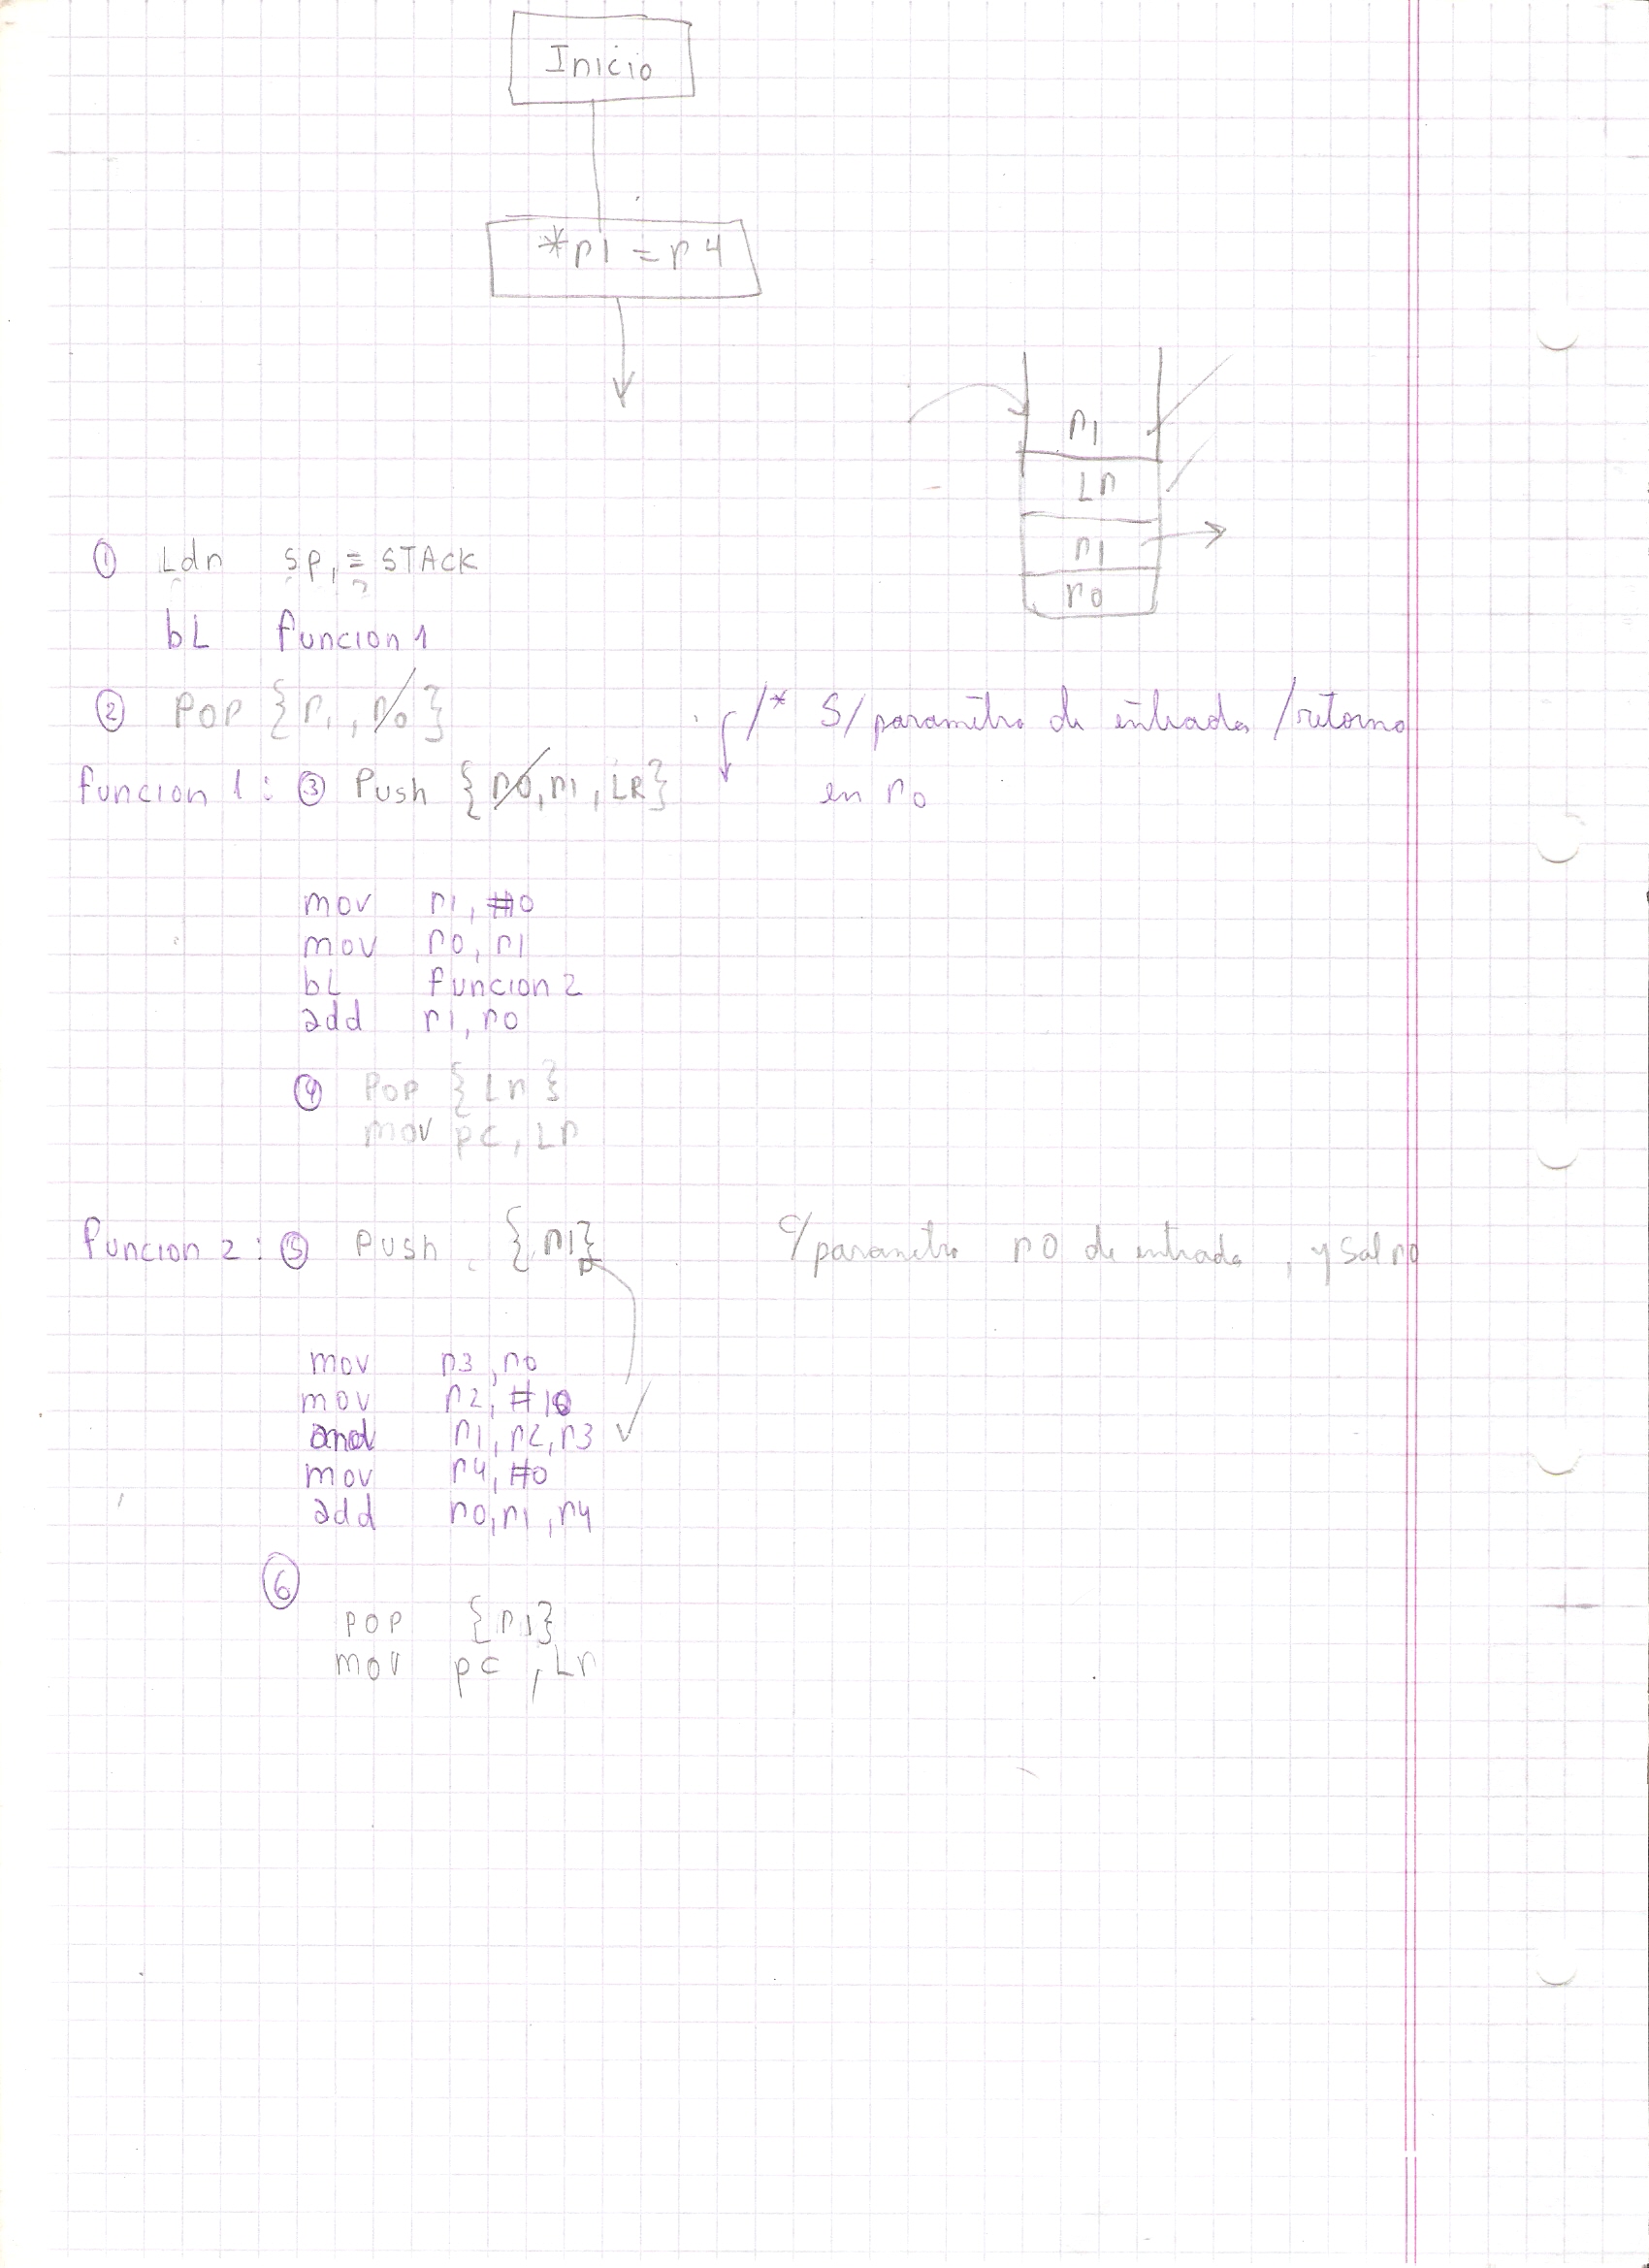 Inicio
*r1 = r4
r1
Lr
r1
r0
① Ldr sp, = STACK
bL funcion 1
② POP {r1, r0}
/* S/parametro de entrada /retorno
funcion 1: ③ Push {r0, r1, LR}
en r0
mov r1, #0
mov r0, r1
bL funcion 2
add r1, r0
④ POP {Lr}
mov pc, Lr
funcion 2: ⑤ Push {r1}
c/parametro r0 de entrada, y sal r0
mov r3, r0
mov r2, #16
and r1, r2, r3
mov r4, #0
add r0, r1, r4
⑥
POP {r1}
mov pc, Lr